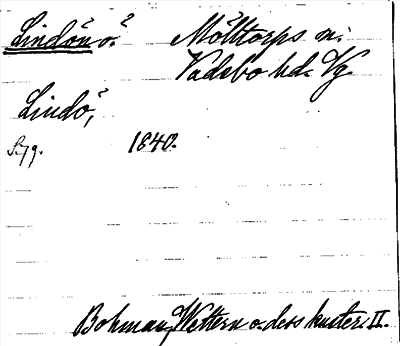 Lindön ö.
Mölltorps sn.
Vadsbo hd. Vg.
Lindö,
Syg. 1840.
Bohman, Wettern o. dess kuster. II.